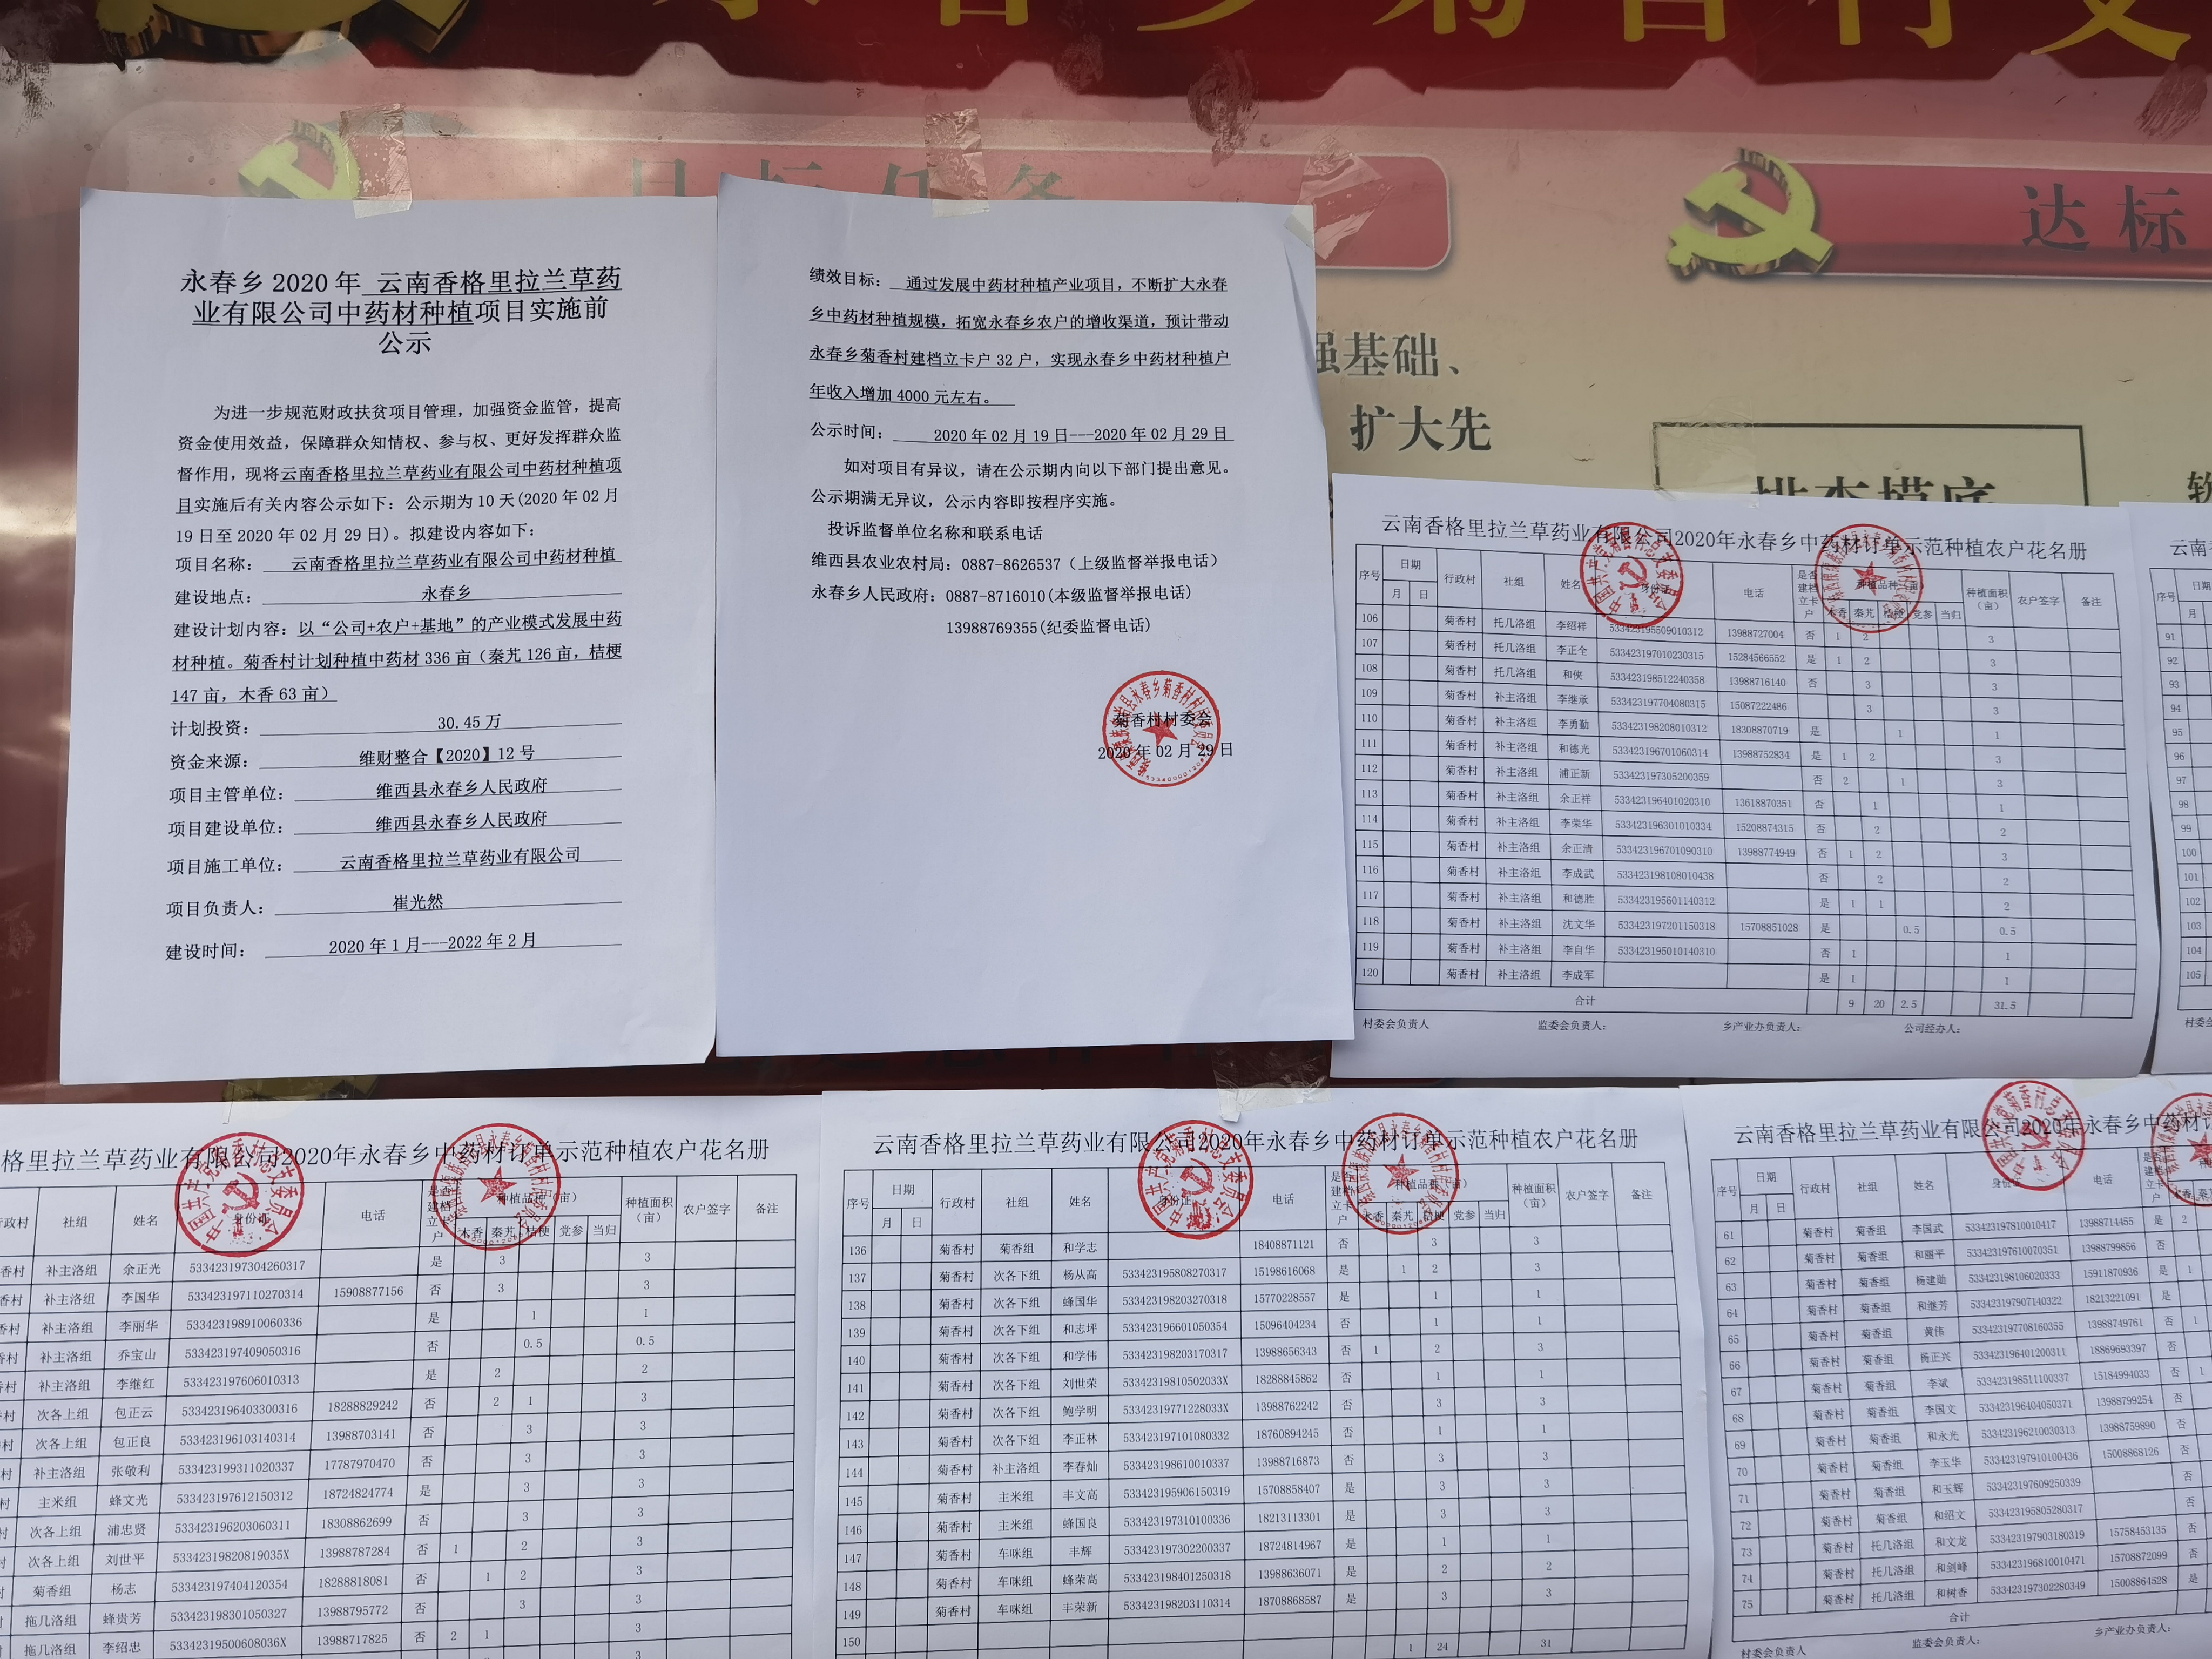 永春乡 2020 年 云南香格里拉兰草药
业有限公司中药材种植项目实施前
公示
为进一步规范财政扶贫项目管理，加强资金监管，提高
资金使用效益，保障群众知情权、参与权、更好发挥群众监
督作用，现将云南香格里拉兰草药业有限公司中药材种植项
目实施后有关内容公示如下：公示期为 10 天(2020 年 02 月
19 日至 2020 年 02 月 29 日)。拟建设内容如下：
项目名称： 云南香格里拉兰草药业有限公司中药材种植
建设地点： 永春乡
建设计划内容：以“公司+农户+基地”的产业模式发展中药
材种植。菊香村计划种植中药材 336 亩（秦艽 126 亩，桔梗
147 亩，木香 63 亩）
计划投资： 30.45 万
资金来源： 维财整合【2020】12 号
项目主管单位： 维西县永春乡人民政府
项目建设单位： 维西县永春乡人民政府
项目施工单位： 云南香格里拉兰草药业有限公司
项目负责人： 崔光然
建设时间： 2020 年 1 月---2022 年 2 月
绩效目标： 通过发展中药材种植产业项目，不断扩大永春
乡中药材种植规模，拓宽永春乡农户的增收渠道，预计带动
永春乡菊香村建档立卡户 32 户，实现永春乡中药材种植户
年收入增加 4000 元左右。
公示时间： 2020 年 02 月 19 日---2020 年 02 月 29 日
如对项目有异议，请在公示期内向以下部门提出意见。
公示期满无异议，公示内容即按程序实施。
投诉监督单位名称和联系电话
维西县农业农村局：0887-8626537（上级监督举报电话）
永春乡人民政府：0887-8716010(本级监督举报电话)
13988769355(纪委监督电话)
菊香村村委会
2020 年 02 月 29 日
达标
强基础、
扩大先
云南香格里拉兰草药业有限公司2020年永春乡中药材订单示范种植农户花名册
序号 日期 行政村 社组 姓名 身份证 电话 是否建档立卡户 种植品种（亩） 种植面积（亩） 农户签字 备注
月 日 木香 秦艽 桔梗 党参 当归
106 菊香村 托几洛组 李绍祥 533423195509010312 13988727004 否 1 2 3
107 菊香村 托几洛组 李正全 533423197010230315 15284566552 是 1 2 3
108 菊香村 托几洛组 和侠 533423198512240358 13988716140 否 3 3
109 菊香村 补主洛组 李继承 533423197704080315 15087222486 3 3
110 菊香村 补主洛组 李勇勤 533423198208010312 18308870719 是 1 1
111 菊香村 补主洛组 和德光 533423196701060314 13988752834 是 1 2 3
112 菊香村 补主洛组 浦正新 533423197305200359 否 2 1 3
113 菊香村 补主洛组 余正祥 533423196401020310 13618870351 否 1 1
114 菊香村 补主洛组 李荣华 533423196301010334 15208874315 否 2 2
115 菊香村 补主洛组 余正清 533423196701090310 13988774949 否 1 2 3
116 菊香村 补主洛组 李成武 533423198108010438 否 2 2
117 菊香村 补主洛组 和德胜 533423195601140312 是 1 1 2
118 菊香村 补主洛组 沈文华 533423197201150318 15708851028 是 0.5 0.5
119 菊香村 补主洛组 李自华 533423195010140310 否 1 1
120 菊香村 补主洛组 李成军 是 1 1
合计 9 20 2.5 31.5
村委会负责人 监委会负责人： 乡产业办负责人： 公司经办人：
序号 日期
月
91
92
93
94
95
96
97
98
99
100
101
102
103
104
105
格里拉兰草药业有限公司2020年永春乡中药材订单示范种植农户花名册
行政村 社组 姓名 身份证 电话 是否建档立卡户 种植品种（亩） 种植面积（亩） 农户签字 备注
木香 秦艽 桔梗 党参 当归
香村 补主洛组 余正光 533423197304260317 是 3 3
香村 补主洛组 李国华 533423197110270314 15908877156 否 3 3
香村 补主洛组 李丽华 533423198910060336 是 1 1
香村 补主洛组 乔宝山 533423197409050316 否 0.5 0.5
村 补主洛组 李继红 533423197606010313 是 2 2
村 次各上组 包正云 533423196403300316 18288829242 否 2 1 3
村 次各上组 包正良 533423196103140314 13988703141 否 3 3
村 补主洛组 张敬利 533423199311020337 17787970470 否 3 3
村 主米组 蜂文光 533423197612150312 18724824774 是 3 3
村 次各上组 浦忠贤 533423196203060311 18308862699 否 3 3
村 次各上组 刘世平 53342319820819035X 13988787284 否 1 2 3
菊香组 杨志 533423197404120354 18288818081 否 1 2 3
拖几洛组 蜂贵芳 533423198301050327 13988795772 否 3 3
拖几洛组 李绍忠 53342319500608036X 13988717825 否 2 1 3
云南香格里拉兰草药业有限公司2020年永春乡中药材订单示范种植农户花名册
序号 日期 行政村 社组 姓名 身份证 电话 是否建档立卡户 种植品种（亩） 种植面积（亩） 农户签字 备注
月 日 木香 秦艽 桔梗 党参 当归
136 菊香村 菊香组 和学志 18408871121 否 3 3
137 菊香村 次各下组 杨从高 533423195808270317 15198616068 是 1 2 3
138 菊香村 次各下组 蜂国华 533423198203270318 15770228557 是 1 1
139 菊香村 次各下组 和志坪 533423196601050354 15096404234 否 1 1
140 菊香村 次各下组 和学伟 533423198203170317 13988656343 否 1 2 3
141 菊香村 次各下组 刘世荣 53342319810502033X 18288845862 否 1 1
142 菊香村 次各下组 鲍学明 53342319771228033X 13988762242 否 3 3
143 菊香村 次各下组 李正林 533423197101080332 18760894245 否 1 1
144 菊香村 补主洛组 李春灿 533423198610010337 13988716873 否 3 3
145 菊香村 主米组 丰文高 533423195906150319 15708858407 是 3 3
146 菊香村 主米组 蜂国良 533423197310100336 18213113301 是 3 3
147 菊香村 车咪组 丰辉 533423197302200337 18724814967 是 1 1
148 菊香村 车咪组 蜂荣高 533423198401250318 13988636071 是 2 2
149 菊香村 车咪组 丰荣新 533423198203110314 18708868587 是 3 3
150
1 24 31
云南香格里拉兰草药业有限公司2020年永春乡中药材订
序号 日期 行政村 社组 姓名 身份证 电话 是否建档立卡户
月 日 木香
61 菊香村 菊香组 李国武 533423197810010417 13988714455 是 2
62 菊香村 菊香组 和丽平 533423197610070351 13988799856 否
63 菊香村 菊香组 杨建勋 533423198106020333 15911870936 是 1
64 菊香村 菊香组 和继芳 533423197907140322 18213221091 是
65 菊香村 菊香组 黄伟 533423197708160355 13988749761 否 1
66 菊香村 菊香组 杨正兴 533423196401200311 18869693397 否
67 菊香村 菊香组 李斌 533423198511100337 15184994033 否 1
68 菊香村 菊香组 李国文 533423196404050371 13988799254 否
69 菊香村 菊香组 和永光 533423196210030313 13988759890 否
70 菊香村 菊香组 李玉华 533423197910100436 15008868126 否
71 菊香村 菊香组 和玉辉 533423197609250339 否
72 菊香村 菊香组 和绍文 533423195805280317 否
73 菊香村 托几洛组 和文龙 533423197903180319 15758453135 否
74 菊香村 托几洛组 和剑峰 533423196810010471 15708872099 否
75 菊香村 托几洛组 和树香 533423197302280349 15008864528 是
合计
村委会负责人 监委会负责人： 乡产业办负责人：